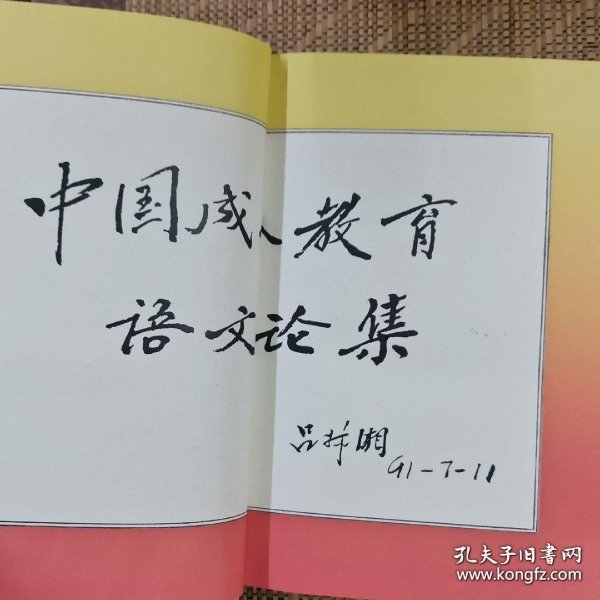 中国成人教育
语文论集
吕叔湘
91-7-11
孔夫子旧书网
www.kongfz.com